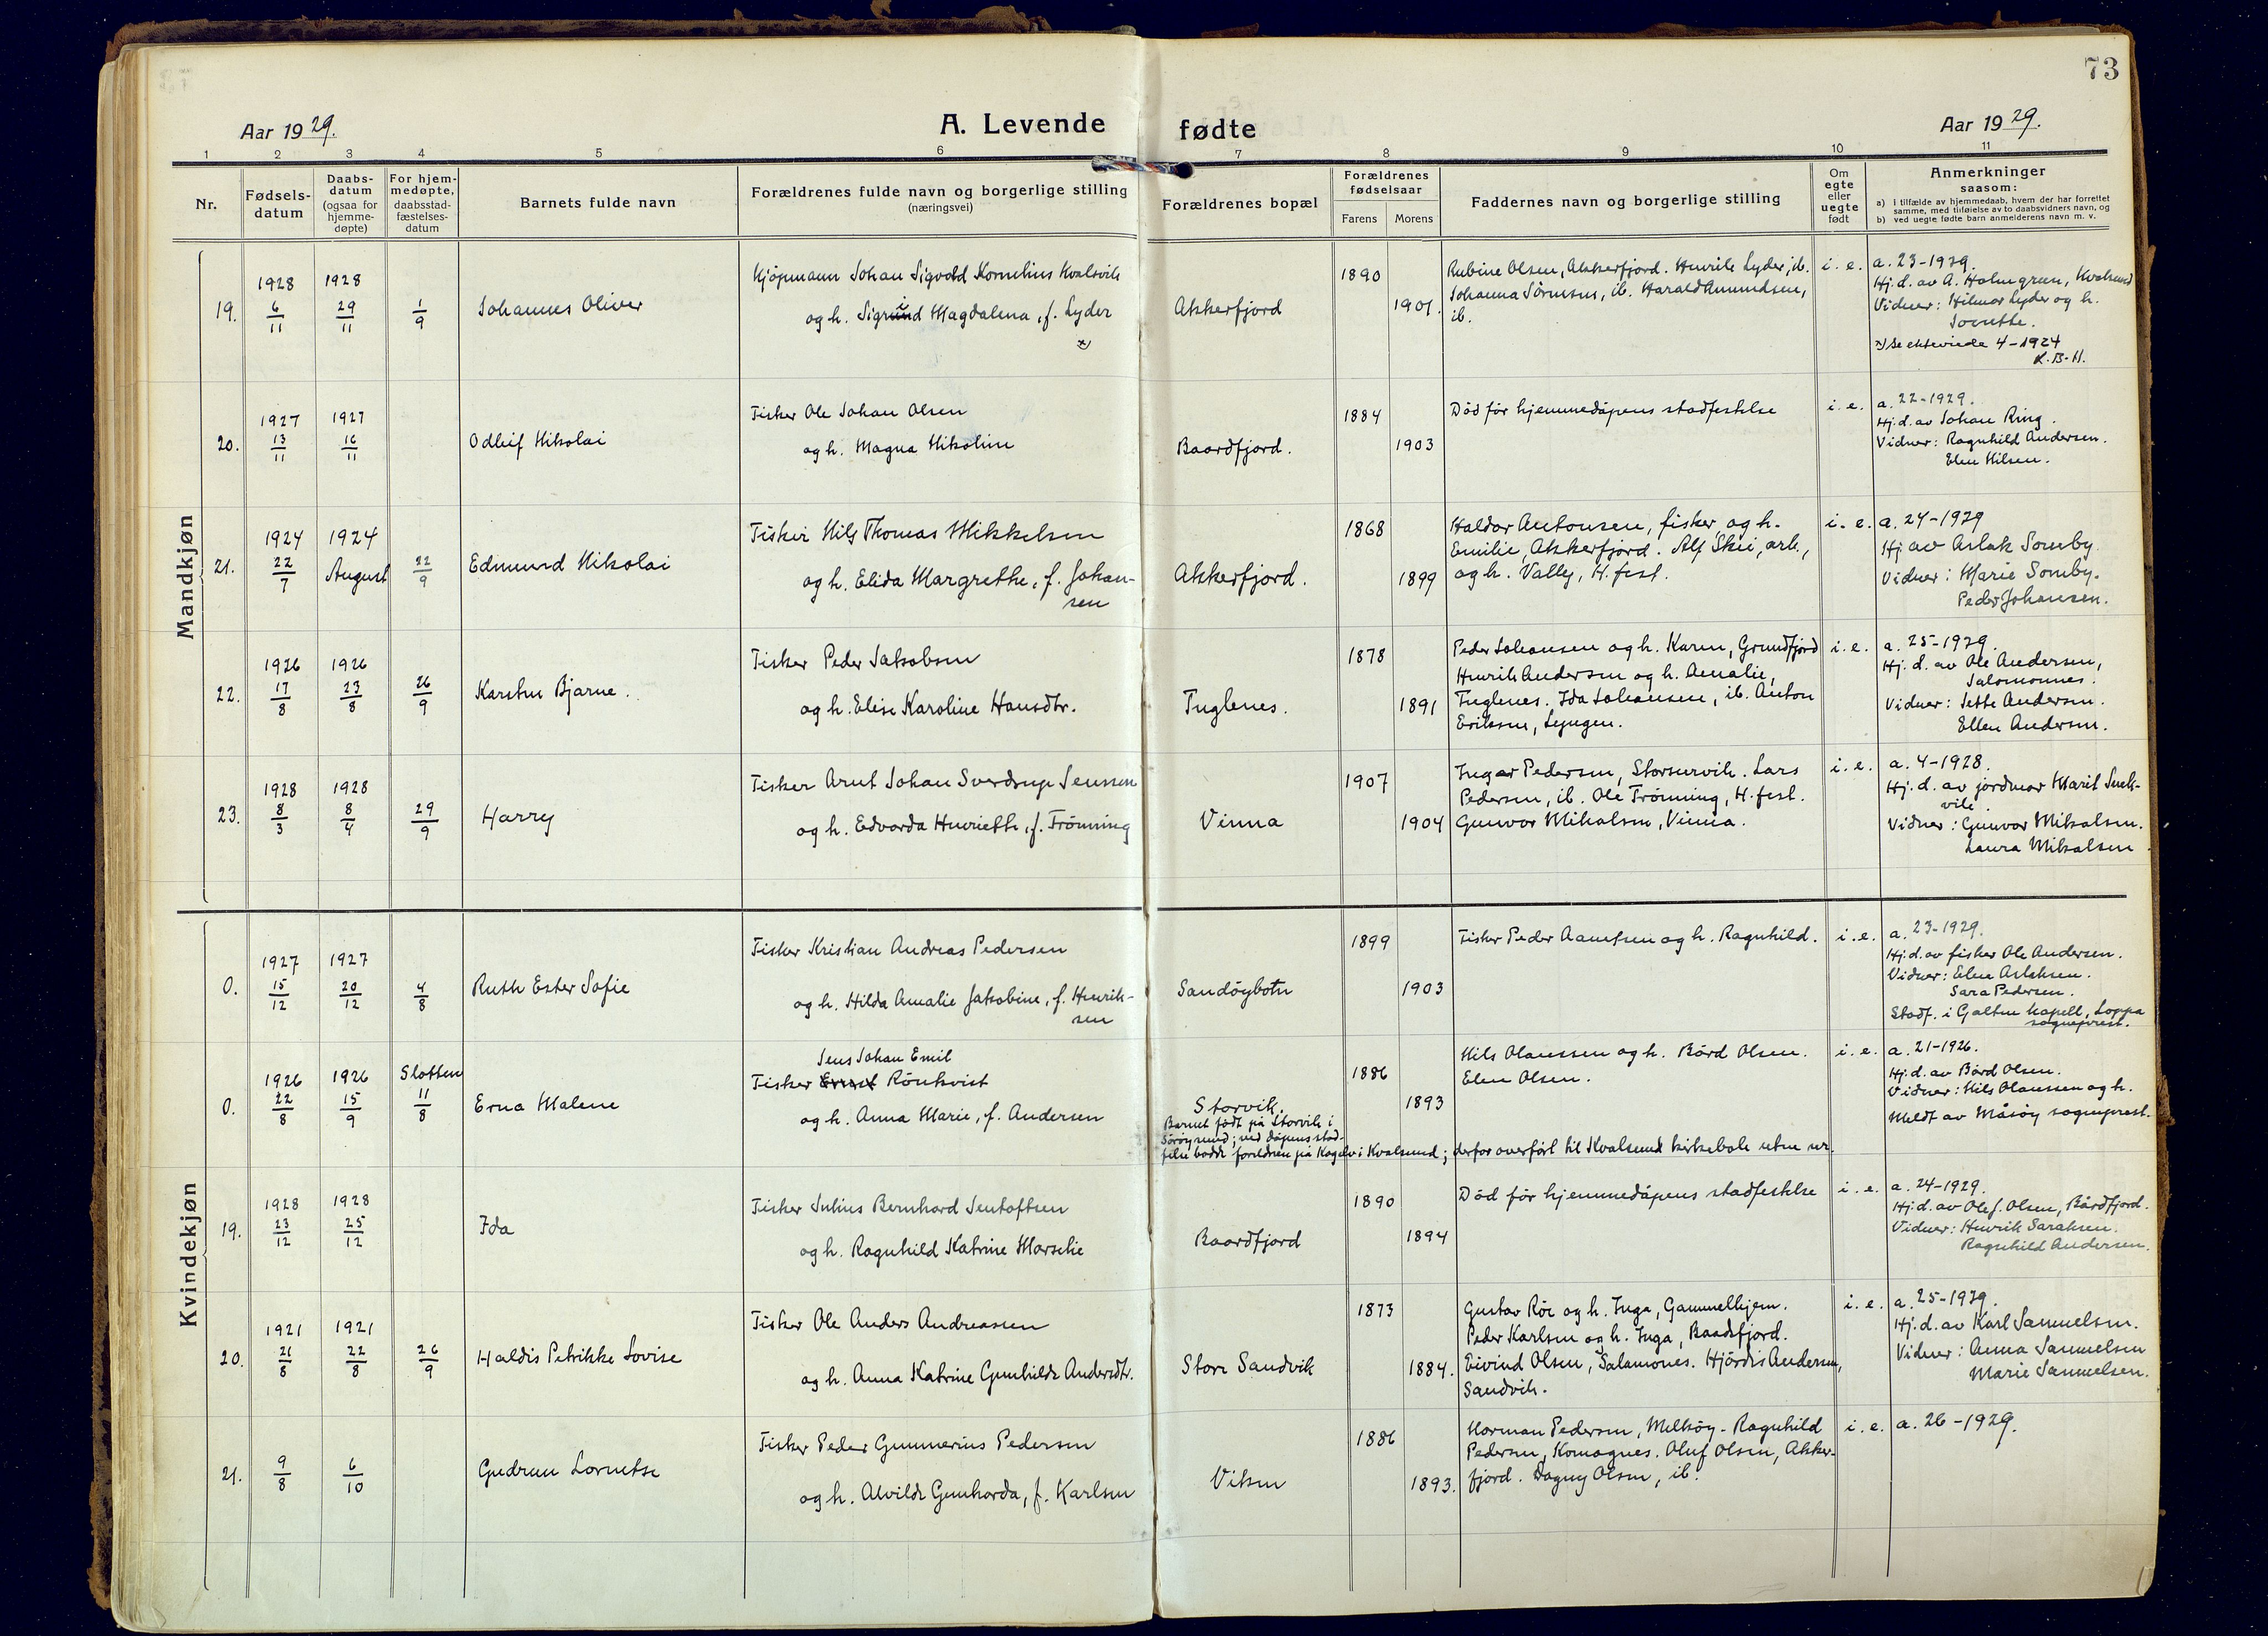 73
Aar 1929.
A. Levende
fødte
Aar 1929.
1 2 3 4 5 6 7 8 9 10 11
Nr.
Fødsels-
datum
Daabs-
datum
(ogsaa for
hjemme-
døpte)
For hjem-
medøpte,
daabsstad-
fæstelses-
datum
Barnets fulde navn
Forældrenes fulde navn og borgerlige stilling
(næringsvei)
Forældrenes bopæl
Forældrenes
fødselsaar
Farens Morens
Faddernes navn og borgerlige stilling
Om
egte
eller
uegte
født
Anmerkninger
saasom:
a) i tilfælde av hjemmedaab, hvem der har forrettet
samme, med tilføielse av to daabsvidners navn, og
b) ved uegte fødte barn anmelderens navn m. v.
Mandkjøn
19.
1928
6/11
1928
29/11
1/9
Johannes Oliver
Kjøpmann Johan Sigvald Kornelius Kvalsvik
og h. Sigrid Magdalena, f. Lyder
x)
Akkerfjord
1890
1901.
Rubine Olsen, Akkerfjord. Henrik Lyder, ib.
Johanna Sörensen, ib. Harald Amundsen,
ib.
i. e.
a. 23-1929.
Hj. d. av A. Holmgreen, Kvalsund
Vidner: Hilmar Lyder og h.
x) Se ekteviede 4-1924
K.B-H.
20.
1927
13/11
1927
16/11
Odleif Nikolai
Fisker Ole Johan Olsen
og h. Magna Nikoline
Baardfjord.
1884
1903
Död för hjemmedåpens stadfestelse
i. e.
a. 22-1929.
Hj. d. av Johan Ring.
Vidner: Ragnhild Andersen.
Elen Nilsen.
21.
1924
22/7
1924
August
22/9
Edmund Nikolai
Fisker Nils Thomas Mikkelsen
og h. Elida Margrethe, f. Johan-
sen
Akkerfjord.
1868
1899
Haldor Antonsen, fisker og h.
Emilie, Akkerfjord. Alf Skii, arb.,
og h. Vally, H.fest.
i. e.
a. 24-1929
Hj av Aslak Somby.
Vidner: Marie Somby.
Peder Johansen.
22.
1926
17/8
1926
23/8
26/9
Karsten Bjarne.
Fisker Peder Jakobsen
og h. Elise Karoline Hansdtr.
Fuglenes.
1878
1891
Peder Johansen og h. Karen, Grundfjord
Henrik Andersen og h. Amalie,
Fuglenes. Ida Johansen, ib. Anton
Eriksen, Lyngen.
i. e.
a. 25-1929.
Hj. d. av Ole Andersen,
Salomonnes.
Vidner: Jette Andersen.
Ellen Andersen.
23.
1928
8/3
1928
8/4
29/9
Harry
Fisker Arnt Johan Sverdrup Jenssen
og h. Edvarda Henriette, f. Trönning
Vinna
1907
1904
Inger Pedersen, Storsurvik. Lars
Pedersen, ib. Ole Trönning, H.fest.
Gunvor Mikalsen, Vinna.
i. e.
a. 4-1928.
Hj. d. av jordmor Marit
Vidner: Gunvor Mikalsen.
Laura Mikalsen
Kvindekjøn
0.
1927
15/12
1927
20/12
4/8
Ruth Ester Sofie
Fisker Kristian Andreas Pedersen
og h. Hilda Amalie Jakobine, f. Henrik-
sen
Sandöybotn
1899
1903
Fisker Peder Aamtsen og h. Ragnhild.
i. e.
a. 23-1929.
Hj. d. av fisker Ole Andersen.
Vidner: Elen Aslaksen.
Sara Pedersen.
Stadf. i Galten kapell, Loppa
sogneprest.
0.
1926
22/8
1926
15/9
Slotten
11/8
Erna Malene
Jens Johan Emil
Fisker Ernst Rönkvist
og h. Anna Marie, f. Andersen
Storvik.
Barnet født på Storvik i
Sörøysund; ved dåpens stad-
felse bodde foreldrene på Kogelv i Kvalsund; derfor overfört til Kvalsund kirkebok uten nr.
1886
1893
Nils Olaussen og h. Bård Olsen.
Elen Olsen.
i. e.
a. 21-1926.
Hj. d. av Bård Olsen.
Vidner: Nils Olaussen og h.
Meldt av Måsöy sogneprest.
19.
1928
23/12
1928
25/12
Ida
Fisker Julius Bernhard Jentoftsen
og h. Ragnhild Katrine Marselie
Baardfjord
1890
1894
Död för hjemmedåpens stadfestelse
i. e.
a. 24-1929.
Hj. d. av Ole J. Olsen, Bårdfjord.
Vidner: Henrik Saraksen.
Ragnhild Andersen.
20.
1921
21/8
1921
22/8
26/9
Haldis Petrikke Lovise
Fisker Ole Anders Andreassen
og h. Anna Katrine Gunhilde Andersdtr.
Store Sandvik
1873
1884.
Gustav Röe og h. Inga, Gammelhjem.
Peder Karlsen og h. Inga, Baadsfjord.
Eivind Olsen, Salamones. Hjördis Andersen,
Sandvik.
i. e.
a. 25-1929.
Hj. d. av Karl Samuelsen.
Vidner: Anna Samuelsen
Marie Samuelsen.
21.
9/8
6/10
Gudrun Lornetse
Fisker Peder Gunnerius Pedersen
og h. Alvilde Gunhorda, f. Karlsen
Viken
1886
1893.
Norman Pedersen, Melköy. Ragnhild
Pedersen, Komagnes. Oluf Olsen, Akker-
fjord. Dagny Olsen, ib.
i. e.
a. 26-1929.